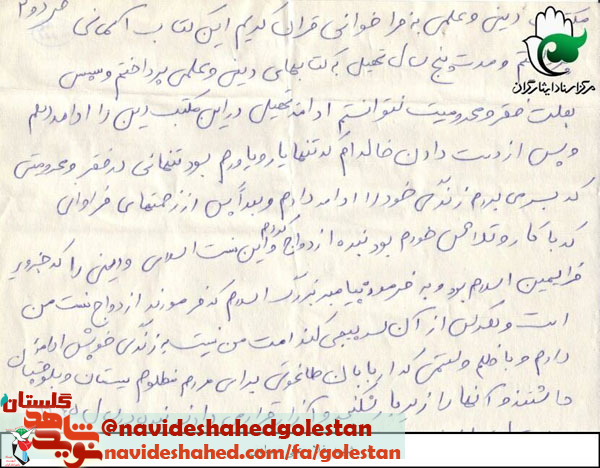 دینی و علمی به فرا خوانی قرآن کریم این کتاب آسمانی
و مدت پنج سال تحصیل به کتابهای دینی و علمی پرداختم و سپس
بعلت فقر و محرومیت نتوانستم ادامه تحصیل در این مکتب دین را ادامه دهم
و پس از دست دادن خاله ام که تنها یار و یاورم بود تنهائی در فقر و محرومیتی
که بسر می بردم زندگی خود را ادامه دادم و بعداً پس از زحمتهای فراوان
که با کار و تلاش خودم بود بنده ازدواج کردم و این سنت اسلامی و دینی را که جزو
فرایض اسلام بود و به فرموده پیامبر بزرگ اسلام که فرمودند ازدواج سنت من
است و هر کس از آن سرپیچی کند امت من نیست به زندگی خویش ادامه
دادم و با ظلم و ستمی که اربابان طاغوتی برای مردم مظلوم سیستان و بلوچستان
داشتند و آنها را زیر بار شکنجه و آزار قرار می دادند
مرکز اسناد ایثارگران
نوید شاهد گلستان
@navideshahedgolestan
navideshahed.com/fa/golestan